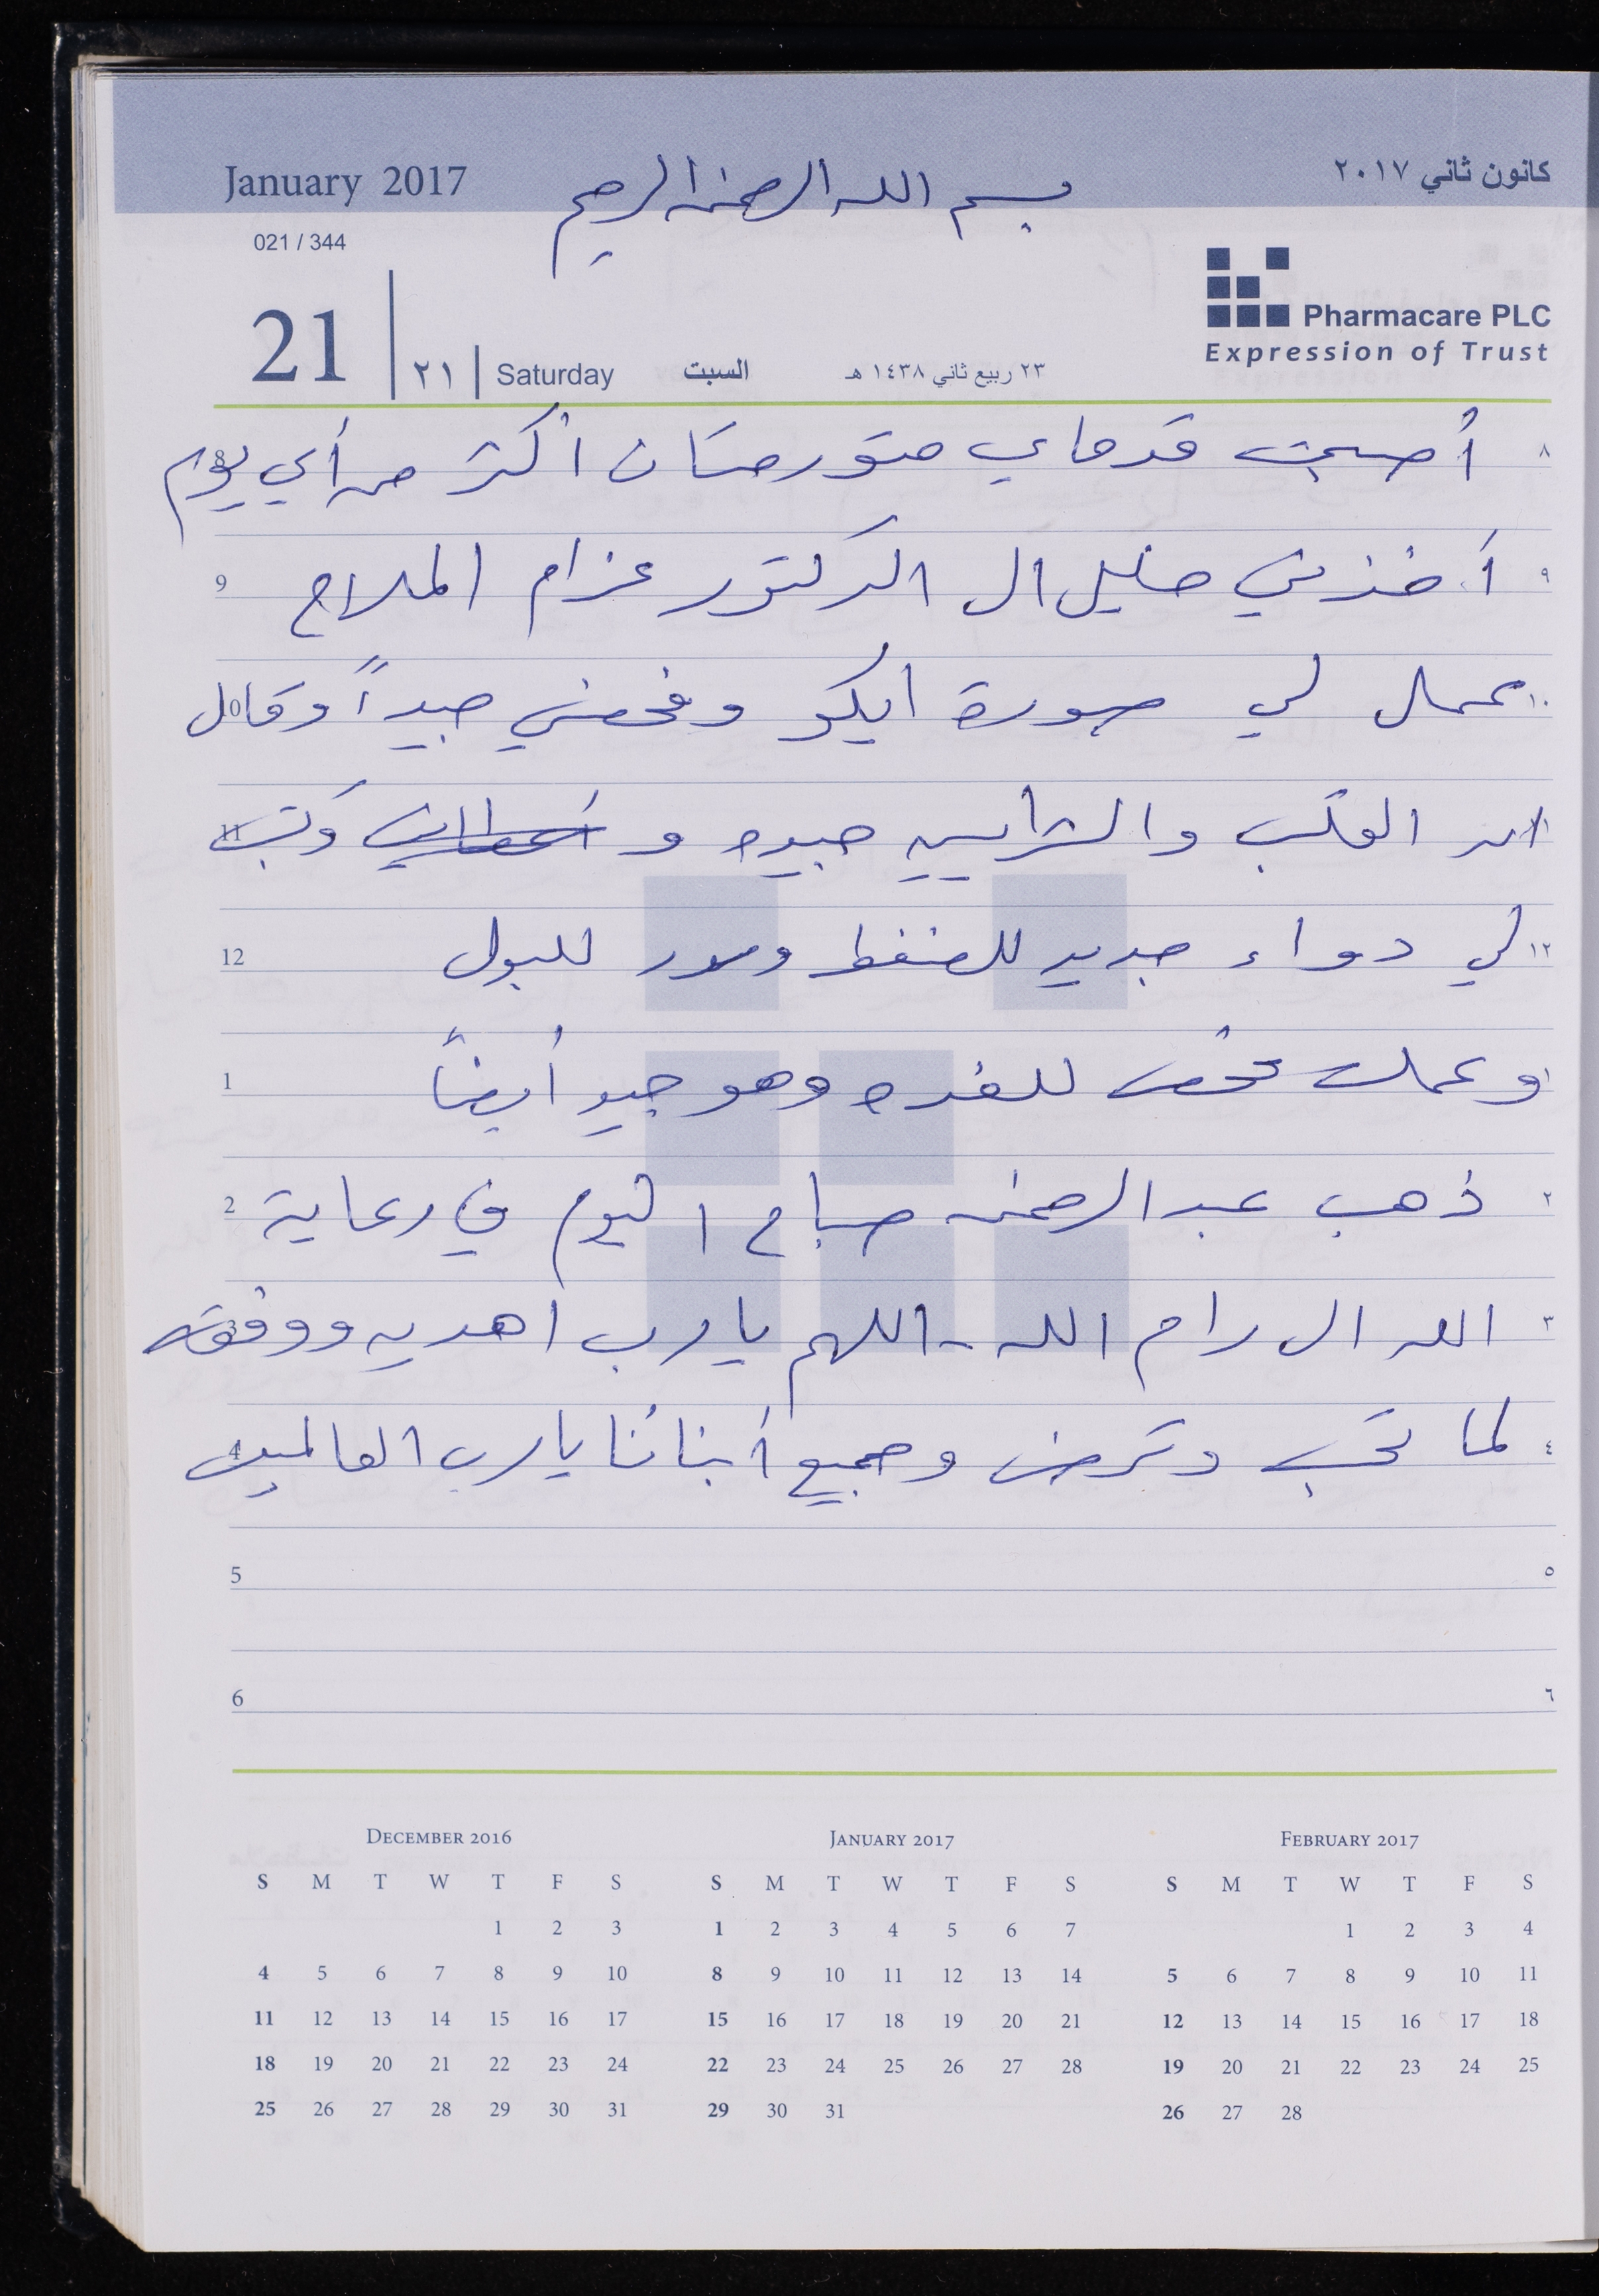 January 2017
بسم الله الرحمن الرحيم
كانون ثاني ٢٠١٧
021 / 344
21 | ٢١ | Saturday السبت ٢٣ ربيع ثاني ١٤٣٨ هـ
Pharmacare PLC
Expression of Trust
٨ أصبحت قدماي متورمتان أكثر من أي يوم 8
٩ أخذني خليل الى الدكتور عزام الملاح 9
١٠ عمل لي صورة ايكو وفحصني جيداً وقال 10
١١ ان القلب والشرايين جيده و أعطاني وكتب 11
١٢ لي دواء جديد للضغط ومدر للبول 12
١ وعملت فحص للغده وهو جيد أيضاً 1
٢ ذهب عبد الرحمن صباح اليوم في رعاية 2
٣ الله الى رام الله - اللهم يا رب اهديه ووفقه 3
٤ لما تحب وترضى وجميع أبنائنا يا رب العالمين 4
5 ٥
6 ٦
December 2016
S M T W T F S
1 2 3
4 5 6 7 8 9 10
11 12 13 14 15 16 17
18 19 20 21 22 23 24
25 26 27 28 29 30 31
January 2017
S M T W T F S
1 2 3 4 5 6 7
8 9 10 11 12 13 14
15 16 17 18 19 20 21
22 23 24 25 26 27 28
29 30 31
February 2017
S M T W T F S
1 2 3 4
5 6 7 8 9 10 11
12 13 14 15 16 17 18
19 20 21 22 23 24 25
26 27 28